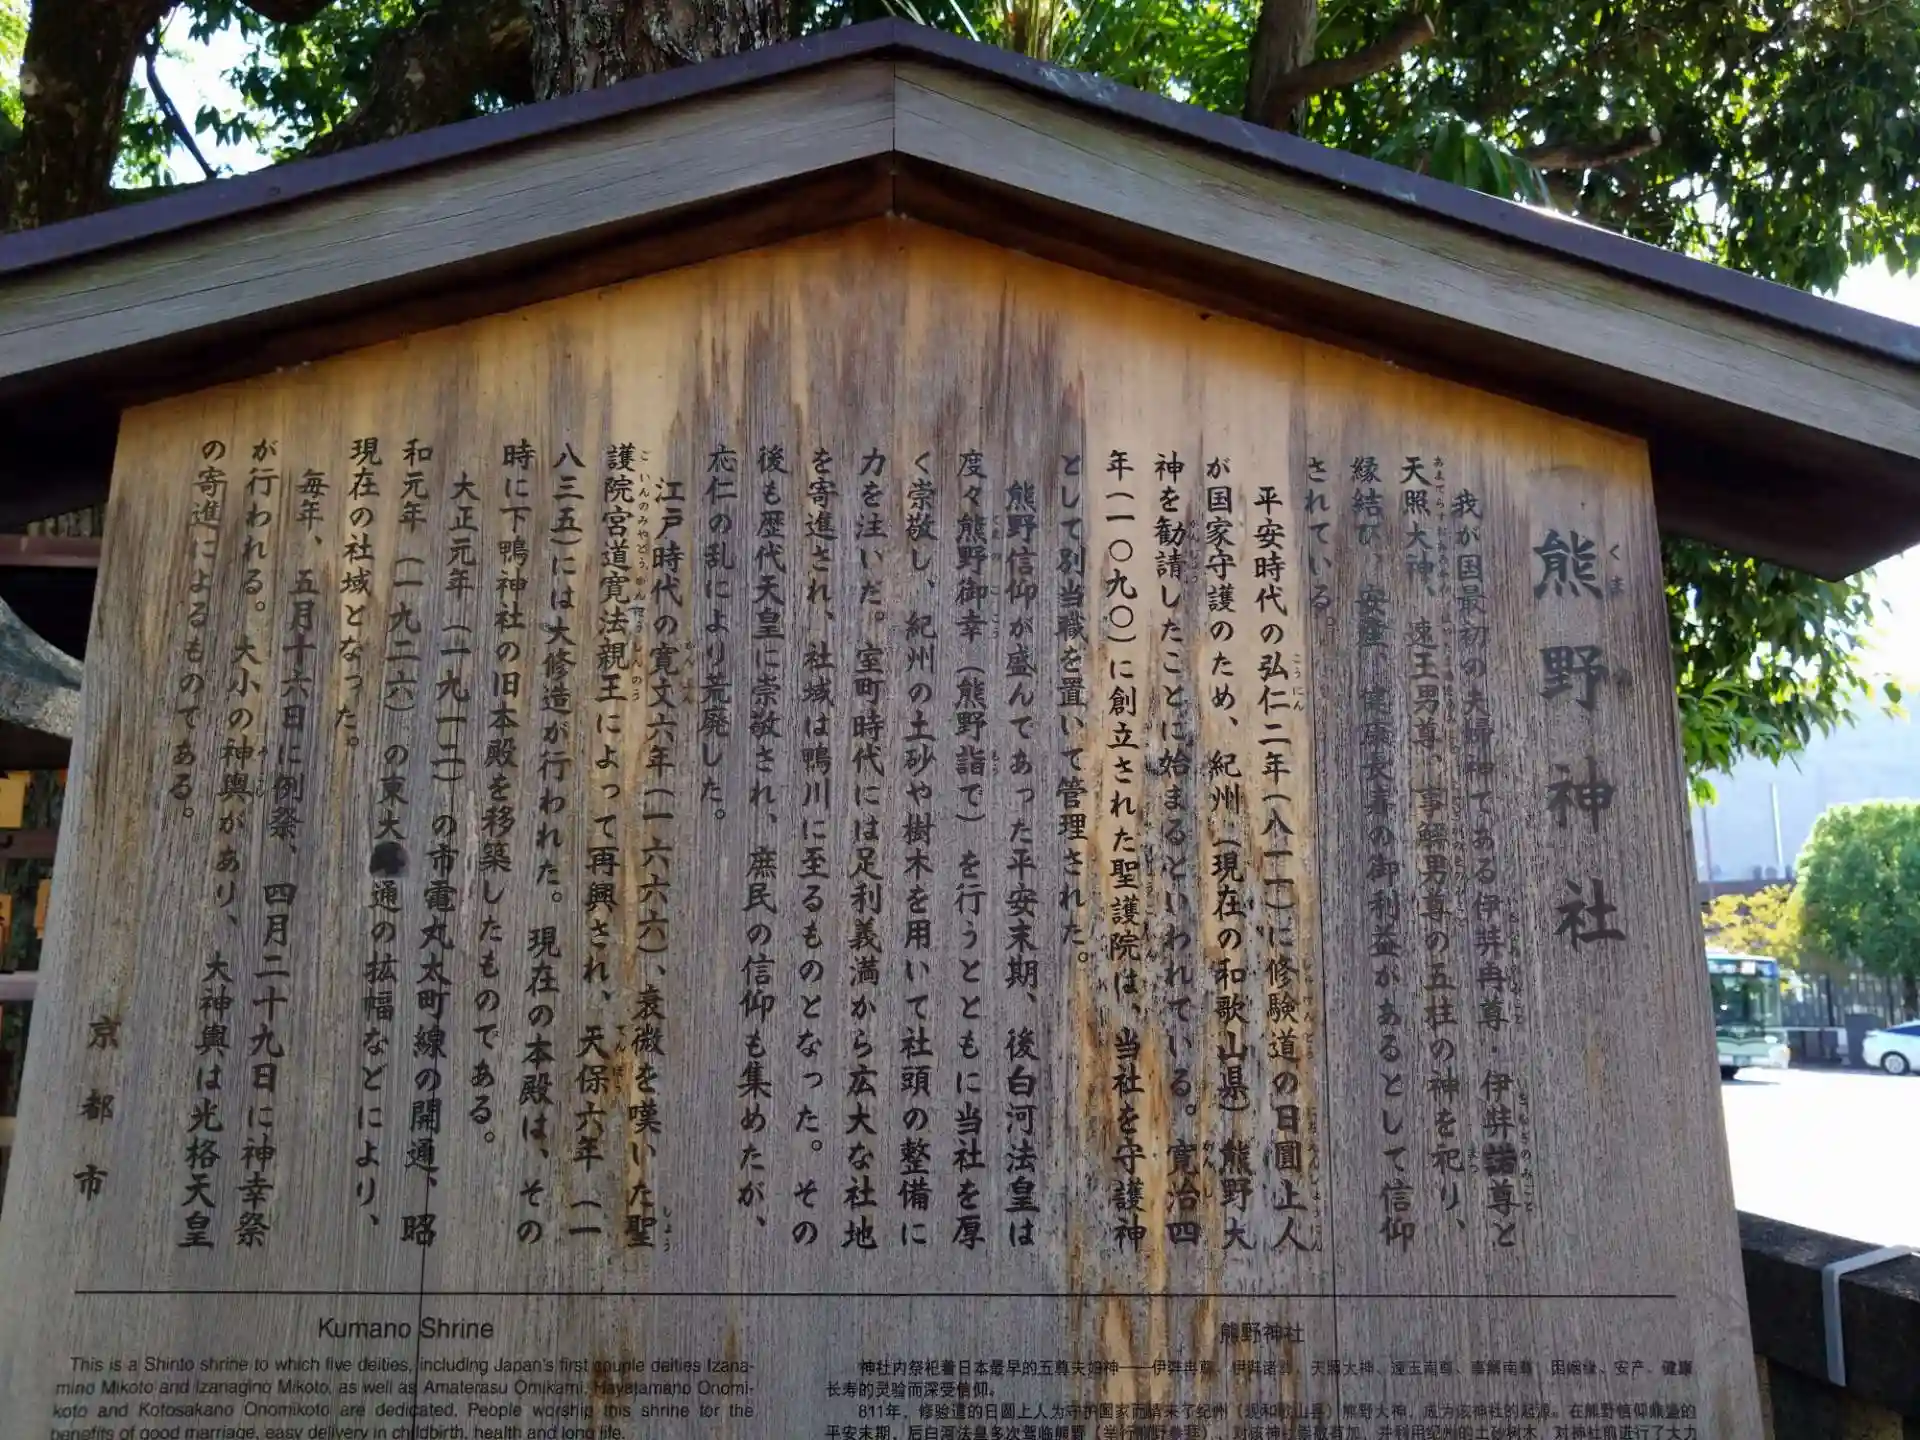 熊野神社
我が国最初の夫婦神である伊弉冉尊・伊弉諾尊と
天照大神、速玉男尊、事解男尊の五柱の神を祀り、
縁結び、安産、健康長寿の御利益があるとして信仰
されている。
平安時代の弘仁二年(八一一)に修験道の日圓上人
が国家守護のため、紀州(現在の和歌山県)熊野大
神を勧請したことに始まるといわれている。寛治四
年(一〇九〇)に創立された聖護院は、当社を守護神
として別当職を置いて管理された。
熊野信仰が盛んであった平安末期、後白河法皇は
度々熊野御幸(熊野詣で)を行うとともに当社を厚
く崇敬し、紀州の土砂や樹木を用いて社頭の整備に
力を注いだ。室町時代には足利義満から広大な社地
を寄進され、社域は鴨川に至るものとなった。その
後も歴代天皇に崇敬され、庶民の信仰も集めたが、
応仁の乱により荒廃した。
江戸時代の寛文六年(一六六六)、衰微を嘆いた聖
護院宮道寛法親王によって再興され、天保六年(一
八三五)には大修造が行われた。現在の本殿は、その
時に下鴨神社の旧本殿を移築したものである。
大正元年(一九一二)の市電丸太町線の開通、昭
和元年(一九二六)の東大通の拡幅などにより、
現在の社域となった。
毎年、五月十六日に例祭、四月二十九日に神幸祭
が行われる。大小の神輿があり、大神輿は光格天皇
の寄進によるものである。
京都市
Kumano Shrine
This is a Shinto shrine to which five deities, including Japan's first couple deities Izana-
mino Mikoto and Izanagino Mikoto, as well as Amaterasu Omikami, Hayatamano Onomi-
koto and Kotosakano Onomikoto are dedicated. People worship this shrine for the
benefits of good marriage, easy delivery in childbirth, health and long life.
熊野神社
神社内祭祀着日本最早的五尊夫妇神——伊弉冉尊、伊弉诸尊、天照大神、速玉南尊、事解南尊、因姻缘、安产、健康
长寿的灵验而深受信仰。
811年，修验道的日圆上人为守护国家而请来了纪州（现和歌山县）熊野大神，成为该神社的起源。在熊野信仰鼎盛的
平安末期，后白河法皇多次驾临熊野（举行熊野参拜），对该神社崇敬有加，并利用纪州的土砂树木，对神社前进行了大力